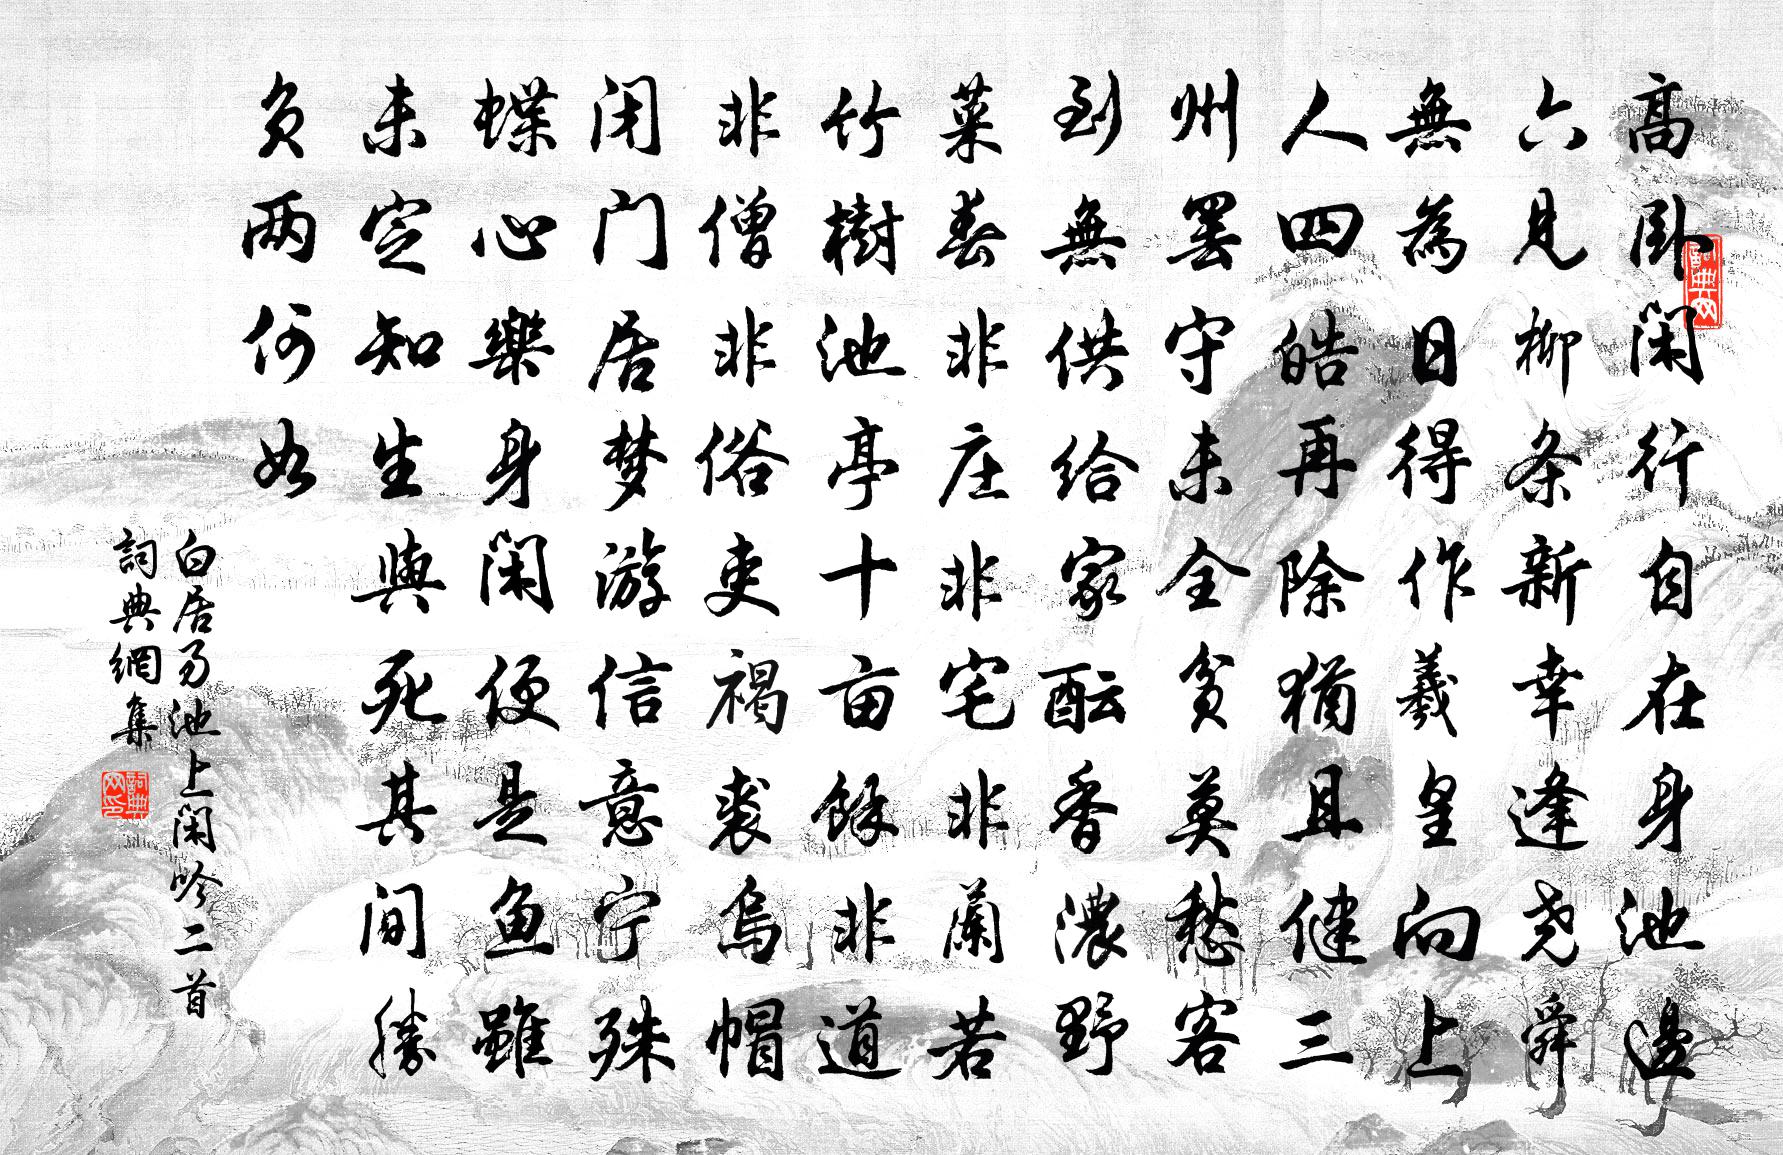 高卧闲行自在身池邊
六見柳条新幸逢尧舜
無為日得作羲皇向上
人四皓再除猶且健三
州罢守未全贫莫愁客
到無供给家酝香濃野
菜春非庄非宅非蘭若
竹樹池亭十亩餘非道
非僧非俗吏褐裘烏帽
闭门居梦游信意宁殊
蝶心樂身闲便是鱼雖
未定知生與死其间勝
负两何如
白居易池上闲吟二首
詞典網集